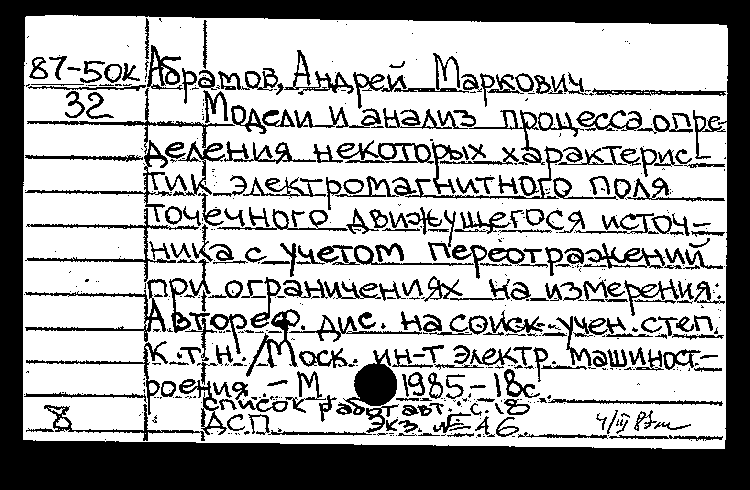 87-50к Абрамов, Андрей Маркович
32 Модели и анализ процесса опре-
деления некоторых характерис-
тик электромагнитного поля
точечного движущегося источ-
ника с учетом переотражений
при ограничениях на измерения:
Автореф. дис. на соиск. учен. степ.
к.т.н. / Моск. ин-т электр. машиност-
роения. - М, 1985 - 18с.
список работ авт.: с. 18
8 ДСП. Экз. № 46.